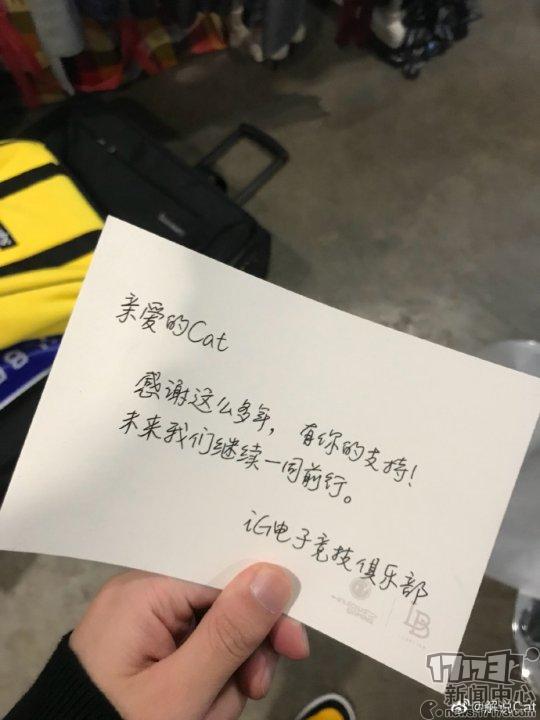 亲爱的Cat
感谢这么多年，有你的支持！
未来我们继续一同前行。
iG电子竞技俱乐部
LDB
17173
新闻中心
news.17173.com
@解说Cat